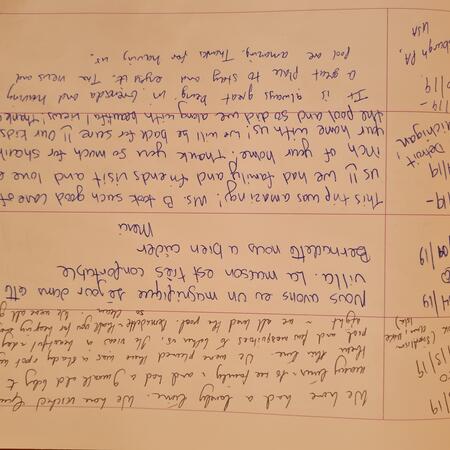 /19
We have had a lovely time. We have visited
many times - to see family - and had a 9 month old baby to
/13/19
them this time. We were pleased there was a shady spot
pool and few mosquitoes to bother us. The view is beautiful - day
night - we all loved the pool. Bernadette - thank you for keeping
so clean. We were all
4/19
Nous avons eu un magnifique séjour dans cette
villa. La maison est très confortable
/19
Bernadette nous a bien aider
Merci
/19-
This trip was amazing! Ms. B took such good care of
/19
us!! We had family and friends visit and love e
Detroit
inch of your home! Thank you so much for sharin
Michigan!
your home with us! We will be back for sure!! Our kids
the pool and so did we along with beautiful views! Thank
/19-
It is always great being in Grenada and having
/19
a great place to stay and enjoy it. The views and
sburgh PA,
pool are amazing. Thanks for having us.
USA